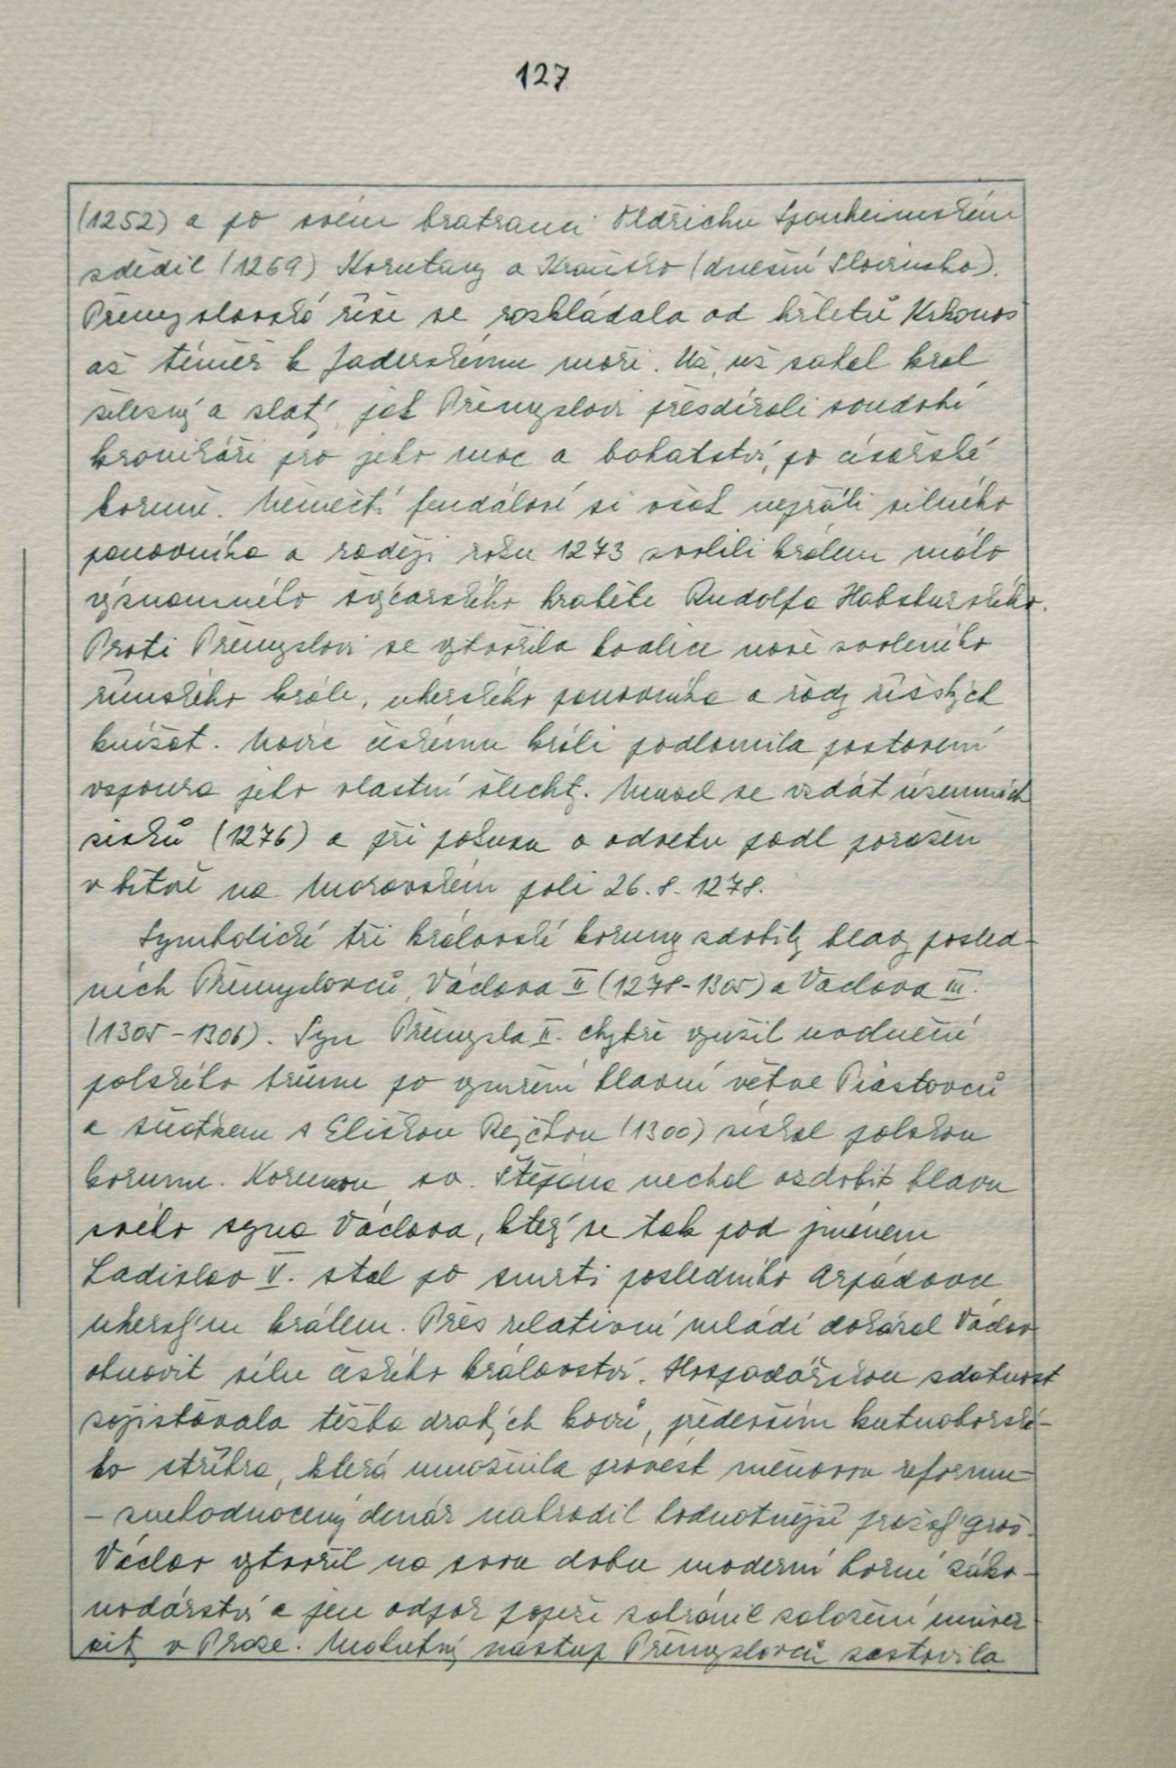 127
(1252) a po svém bratranci Oldřichu Sponheimském
zdědil (1269) Korutany a Kraňsko (dnešní Slovinsko).
Přemyslovská říše se rozkládala od hřbetů Krkonoš
až téměř k Jaderskému moři. Už, už sahal král
železný a zlatý, jak Přemyslovi přezdívali soudobí
kronikáři pro jeho moc a bohatství, po císařské
koruně. Němečtí feudálové si však nepřáli silného
panovníka a raději roku 1273 zvolili králem málo
významného švýcarského hraběte Rudolfa Habsburského.
Proti Přemyslovi se vytvořila koalice nově zvoleného
římského krále, uherského panovníka a řady říšských
knížat. Navíc českému králi podlomila postavení
vzpoura jeho vlastní šlechty. Musel se vzdát územních
zisků (1276) a při pokusu o odvetu padl poražen
v bitvě na Moravském poli 26. 8. 1278.
Symbolické tři královské koruny zdobily hlavy posled-
ních Přemyslovců, Václava II (1278-1305) a Václava III.
(1305-1306). Syn Přemysla II. chytře využil uvolnění
polského trůnu po vymření hlavní větve Piastovců
a sňatkem s Eliškou Rejčkou (1300) získal polskou
korunu. Korunou sv. Štěpána nechal ozdobit hlavu
svého syna Václava, který se tak pod jménem
Ladislav V. stal po smrti posledního Arpádovce
uherským králem. Přes relativní mládí dokázal Václav
obnovit sílu českého království. Hospodářskou zdatnost
zajišťovala těžba drahých kovů, především kutnohorské-
ho stříbra, která umožnila provést měnovou reformu-
- znehodnocený denár nahradil hodnotnější pražský groš.
Václav vytvořil na svou dobu moderní horní záko-
nodárství a jen odpor papeže zabránil založení univer
zity v Praze. Mohutný nástup Přemyslovců zastavila